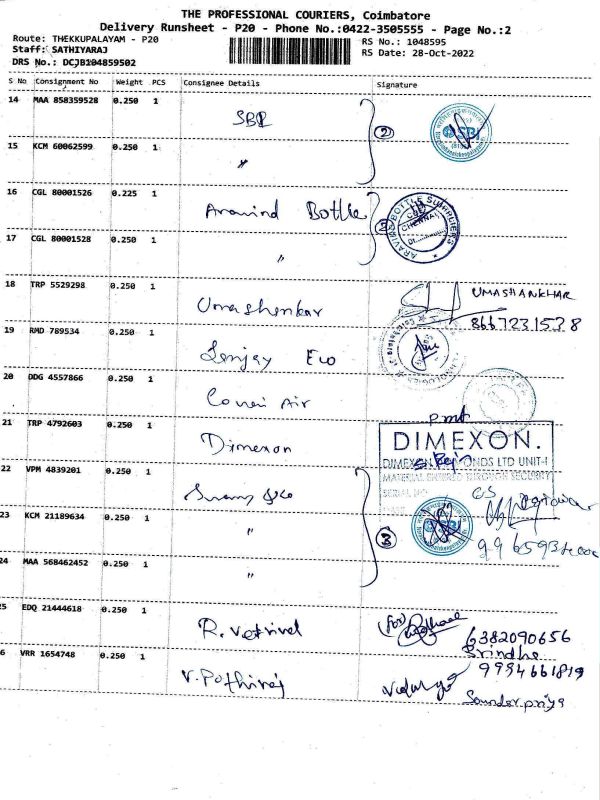 THE PROFESSIONAL COURIERS, Coimbatore
Delivery Runsheet - P20 - Phone No.:0422-3505555 - Page No.:2
Route: THEKKUPALAYAM - P20
RS No.: 1048595
Staff: SATHIYARAJ
RS Date: 28-Oct-2022
DRS No.: DCJB104859502
S No Consignment No Weight PCS Consignee Details Signature
14 MAA 858359528 0.250 1 SBI (2) SBI
15 KCM 60062599 0.250 1 "
16 CGL 80001526 0.225 1 Aravind Bottle ARAVIND BOTTLE SUPPLIERS
17 CGL 80001528 0.250 1 "
18 TRP 5529298 0.250 1 Umashenkar UMASHANKHAR
8667231538
19 RMD 789534 0.250 1 Sanjay
20 DDG 4557866 0.250 1 Air
21 TRP 4792603 0.250 1 Dimexon
DIMEXON.
DIMEXON DIAMONDS LTD UNIT-I
MATERIAL ENTERED THROUGH SECURITY
22 VPM 4839201 0.250 1
23 KCM 21189634 0.250 1 " (3) SBI
24 MAA 568462452 0.250 1 "
25 EDQ 21444618 0.250 1 R. Vetrivel (for) 6382090656
Srindhe
26 VRR 1654748 0.250 1 V. Pothiraj 9994661819
Soundar priya